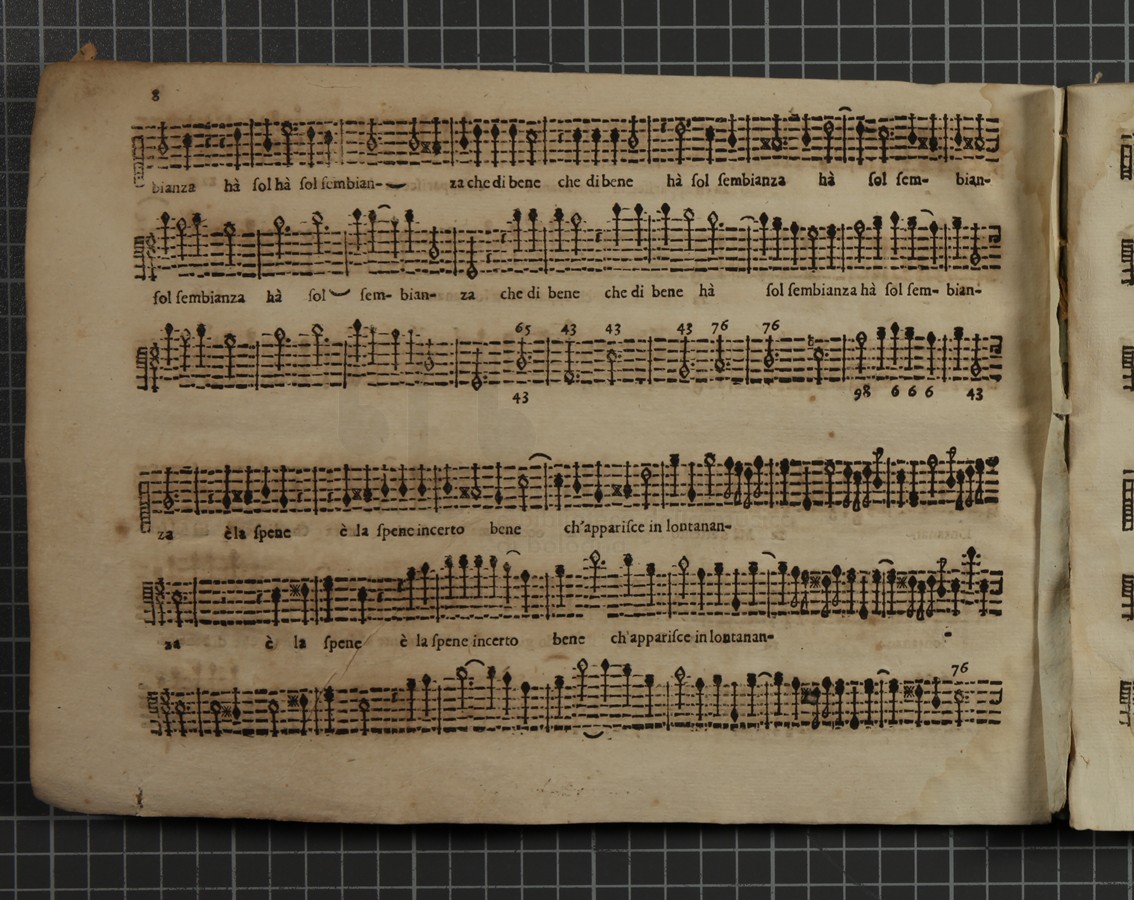 8
bianza hà ſol hà ſol ſembian- za che di bene che di bene hà ſol ſembianza hà ſol ſem- bian-
ſol ſembianza hà ſol ſem- bian- za che di bene che di bene hà ſol ſembianza hà ſol ſem- bian-
65 43 43 43 76 76
43 98 6 6 6 43
za è la ſpene è la ſpene incerto bene ch'appariſce in lontanan-
za è la ſpene è la ſpene incerto bene ch'appariſce in lontanan-
76